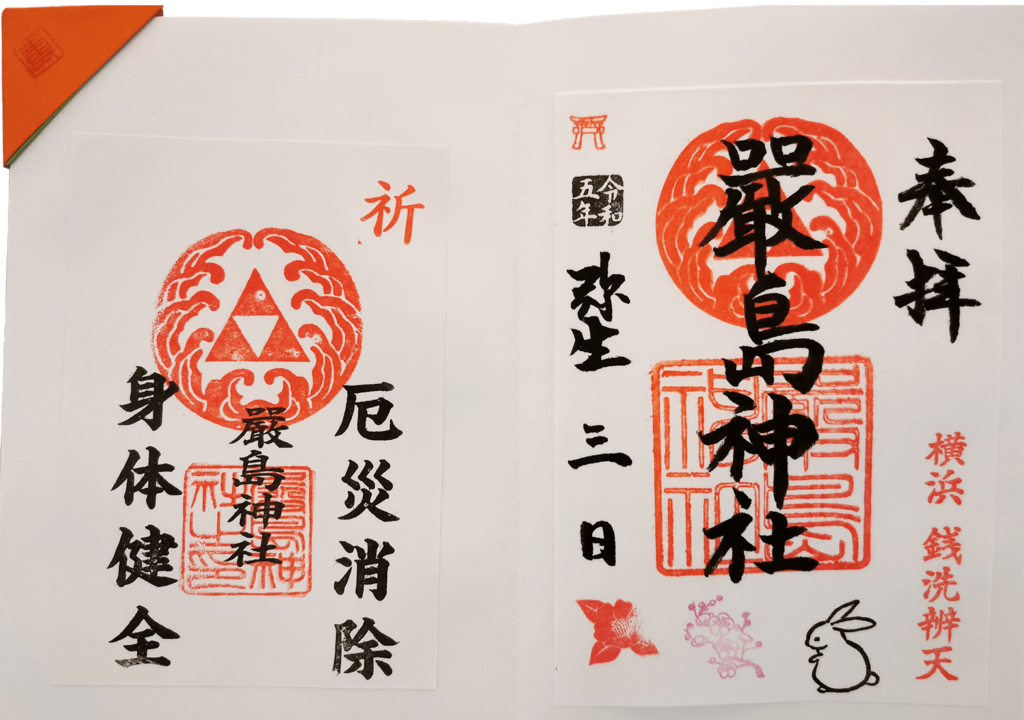 奉拝
横浜 銭洗辨天
嚴島神社
令和
五年
弥生 三 日
祈
厄災消除
嚴島神社
身体健全